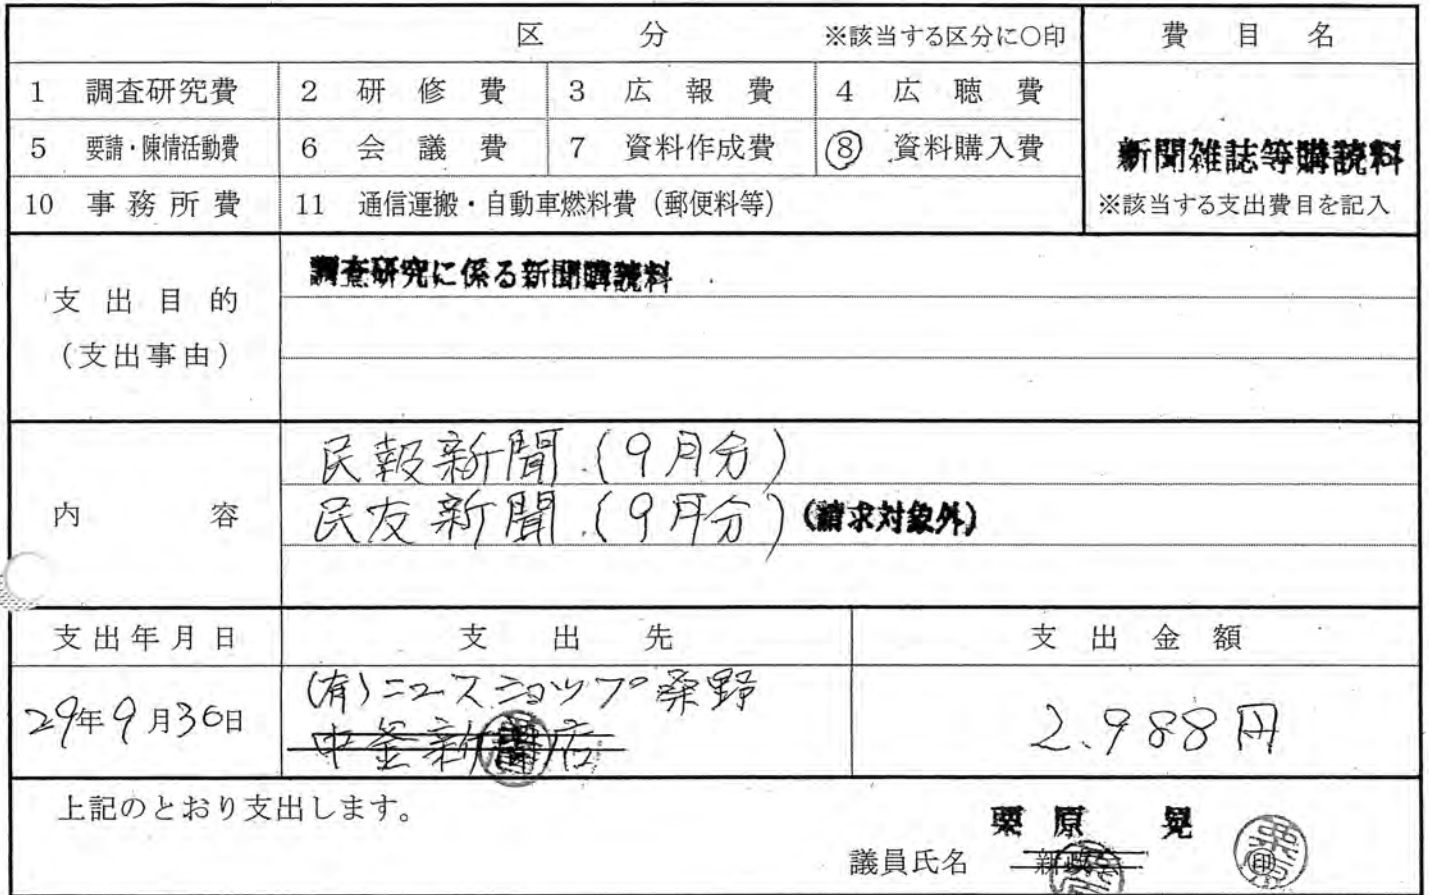 区 分 ※該当する区分に○印 費 目 名
1 調査研究費 2 研 修 費 3 広 報 費 4 広 聴 費
5 要請・陳情活動費 6 会 議 費 7 資料作成費 ⑧ 資料購入費
新聞雑誌等購読料
10 事 務 所 費 11 通信運搬・自動車燃料費(郵便料等)
※該当する支出費目を記入
調査研究に係る新聞購読料
支 出 目 的
(支出事由)
民報新聞(9月分)
内 容 民友新聞(9月分)(請求対象外)
支出年月日 支 出 先 支 出 金 額
29年9月30日 (有)ニュースショップ桑野 2.988円
上記のとおり支出します。
栗 原 晃
議員氏名 印